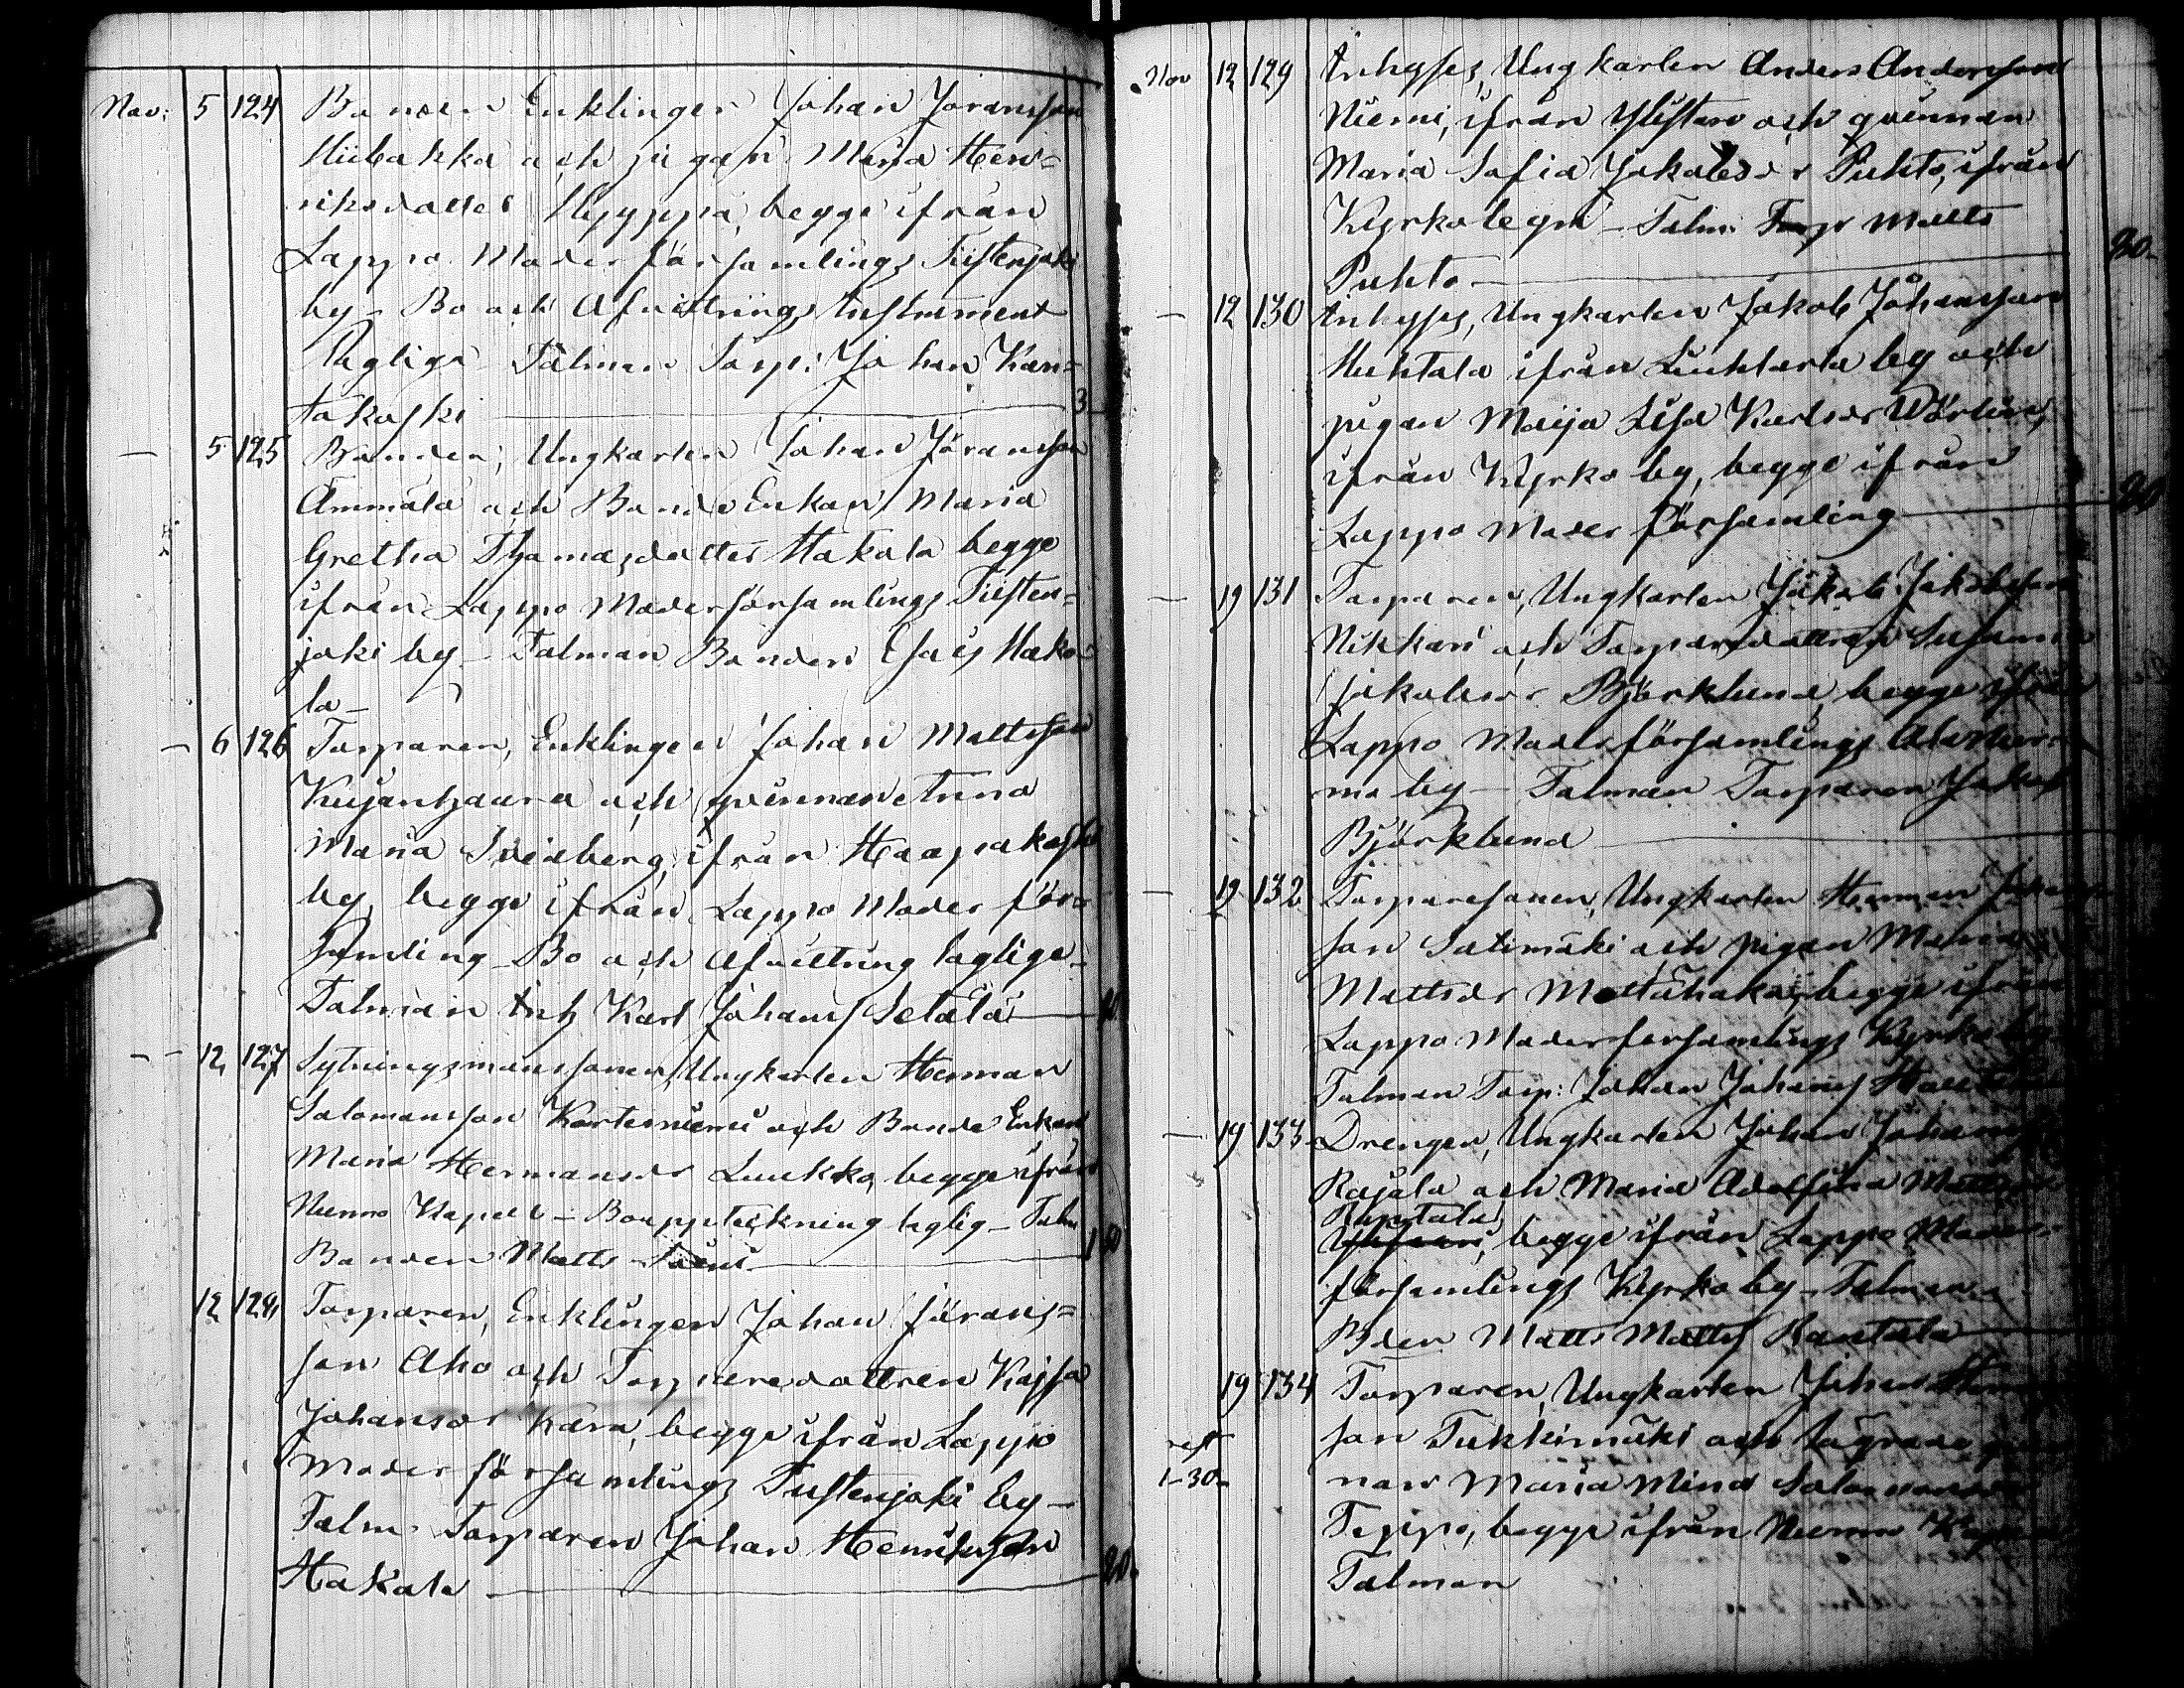 Nov: 5 124 Bonden Enklingen Johan Joransson
Hiibakka och pigan Maria Hen=
riksdotter Hyyppä, begge ifrån
Lappo Moderförsamlings Tiistenjoki
by – Bo och Afvittrings instrument
lagliga Talman Torp: Johan Kan=
takoski 3
— 5 125 Bonden, Ungkarlen Johan Jöransson
Ammälä och Bonde Enkan Maria
Gretha Thomasdotter Hakola begge
ifrån Lappo Moderförsamlings Tiisten=
joki by – Talman Bonden Esaias Hako=
la –
— 6 126 Torparen, Enklingen Johan Mattsson
och qvinnan Anna
Maria ifrån Haapakoski
by, begge ifrån Lappo Moder för=
samling – Bo och Afvittring laglige –
Talman Inh Karl Johans Setälä
— 12 127 Sytningsmanssonen, Ungkarlen Herman
Salomonsson Kortesniemi och Bonde Enkan
Maria Hermansdr Luukko, begge ifrån
Nurmo Kapell – Bouppteckning laglig – Talm
Bonden Matts
12 128 Torparen, Enklingen Johan Jörans=
son Aho och Torparedottren Kajsa
Johansdr Kara, begge ifrån Lappo
Moderförsamlings Tiistenjoki by –
Talm. Torparen Johan Henriksson
Hakala 20.
Nov 12 129 Inhyses, Ungkarlen Anders Andersson
Niemi, ifrån Ylistaro och qvinnan
Maria Sofia Jakobsdr Puhto, ifrån
Kyrkobyn – Talm. Torp Matts
Puhto 20.
— 12 130 Inhyses, Ungkarlen Jakob Johansson
Huhtala ifrån Liuhtarla by och
pigan Maija Lisa Karlsdr
ifrån Kyrko by, begge ifrån
Lappo Moder församling 20
— 19 131 Torparen, Ungkarlen Jakob Jakobsson
Nikkari och Torparedottren Susanna
Jakobsdr Björklund, begge ifrån
Lappo Moderförsamlings Alanur=
mo by – Talman Torparen Jakob
Björklund
— 19 132 Torparesonen, Ungkarlen Herman Johans
son Salimäki och pigan Maria
Mattsdr begge ifrån
Lappo Moderförsamlings Kyrko by
Talman Torp: Johan Johans
— 19 133 Drengen, Ungkarlen Johan Johans
Rajala och Maria Adolfina Mattsdr
Rantala
begge ifrån Lappo Moder=
församlings Kyrko by – Talman
Bden Matts Matts Rantala
19 134 Torparen, Ungkarlen Johan
son Tukkimäki och lägrade qvin
rest
1–30. nan Maria Mina Salomonsdr
Teppo, begge ifrån Nurmo Kapell
Talman